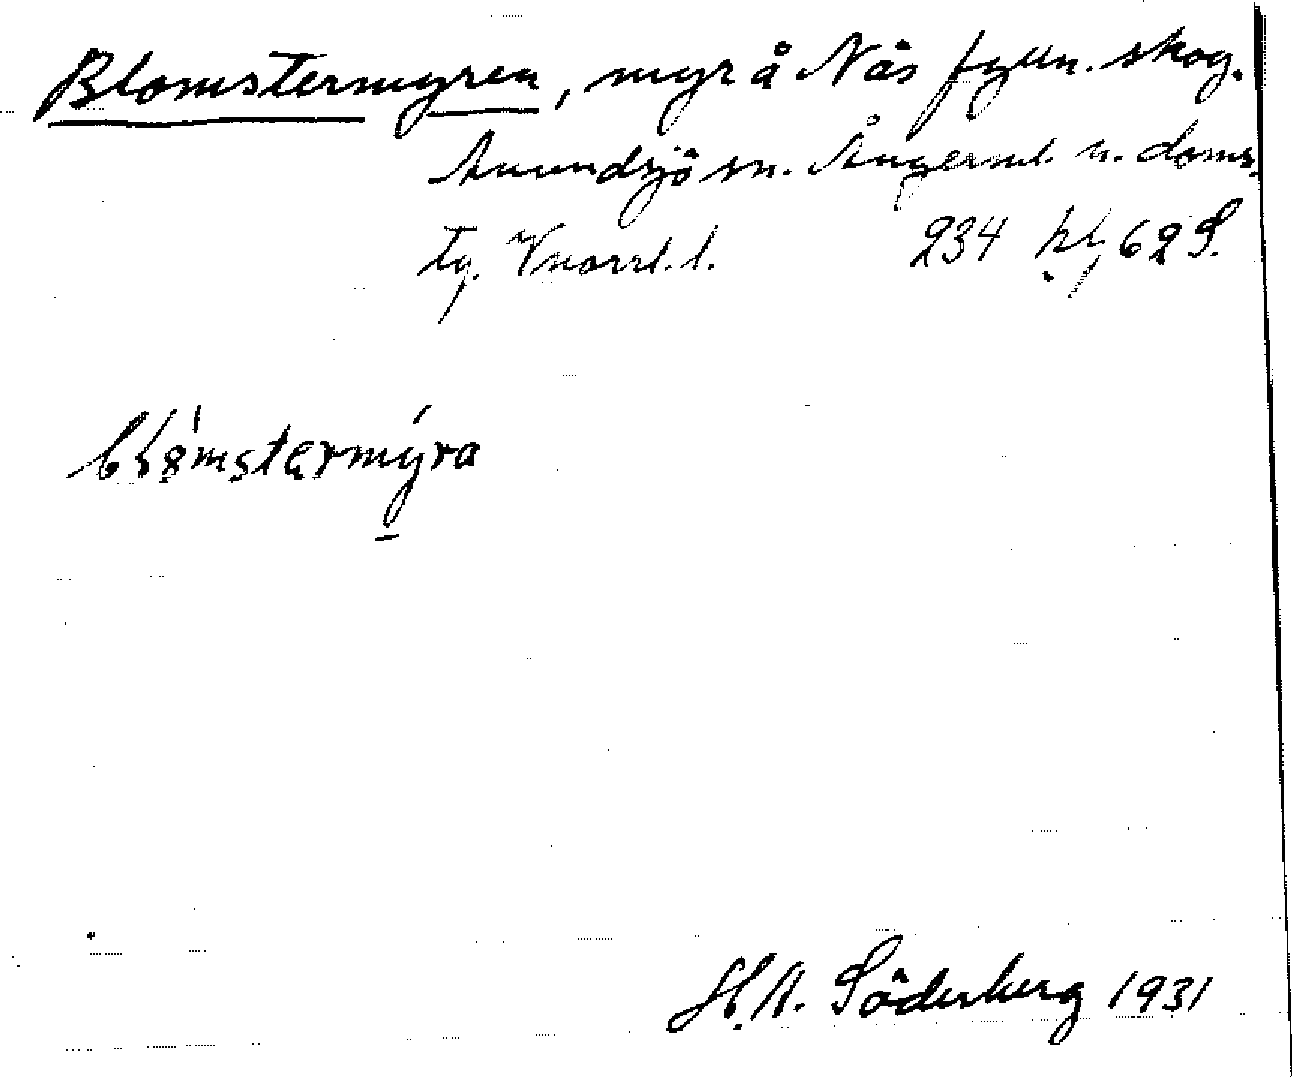 Blomstermyren, myr å Näs fylln. skog.
Anundsjö sn. Ångerml. n. doms.
tg. Vnorrl. l. 234 62 S.
blömstermyra
H. A. Söderberg 1931